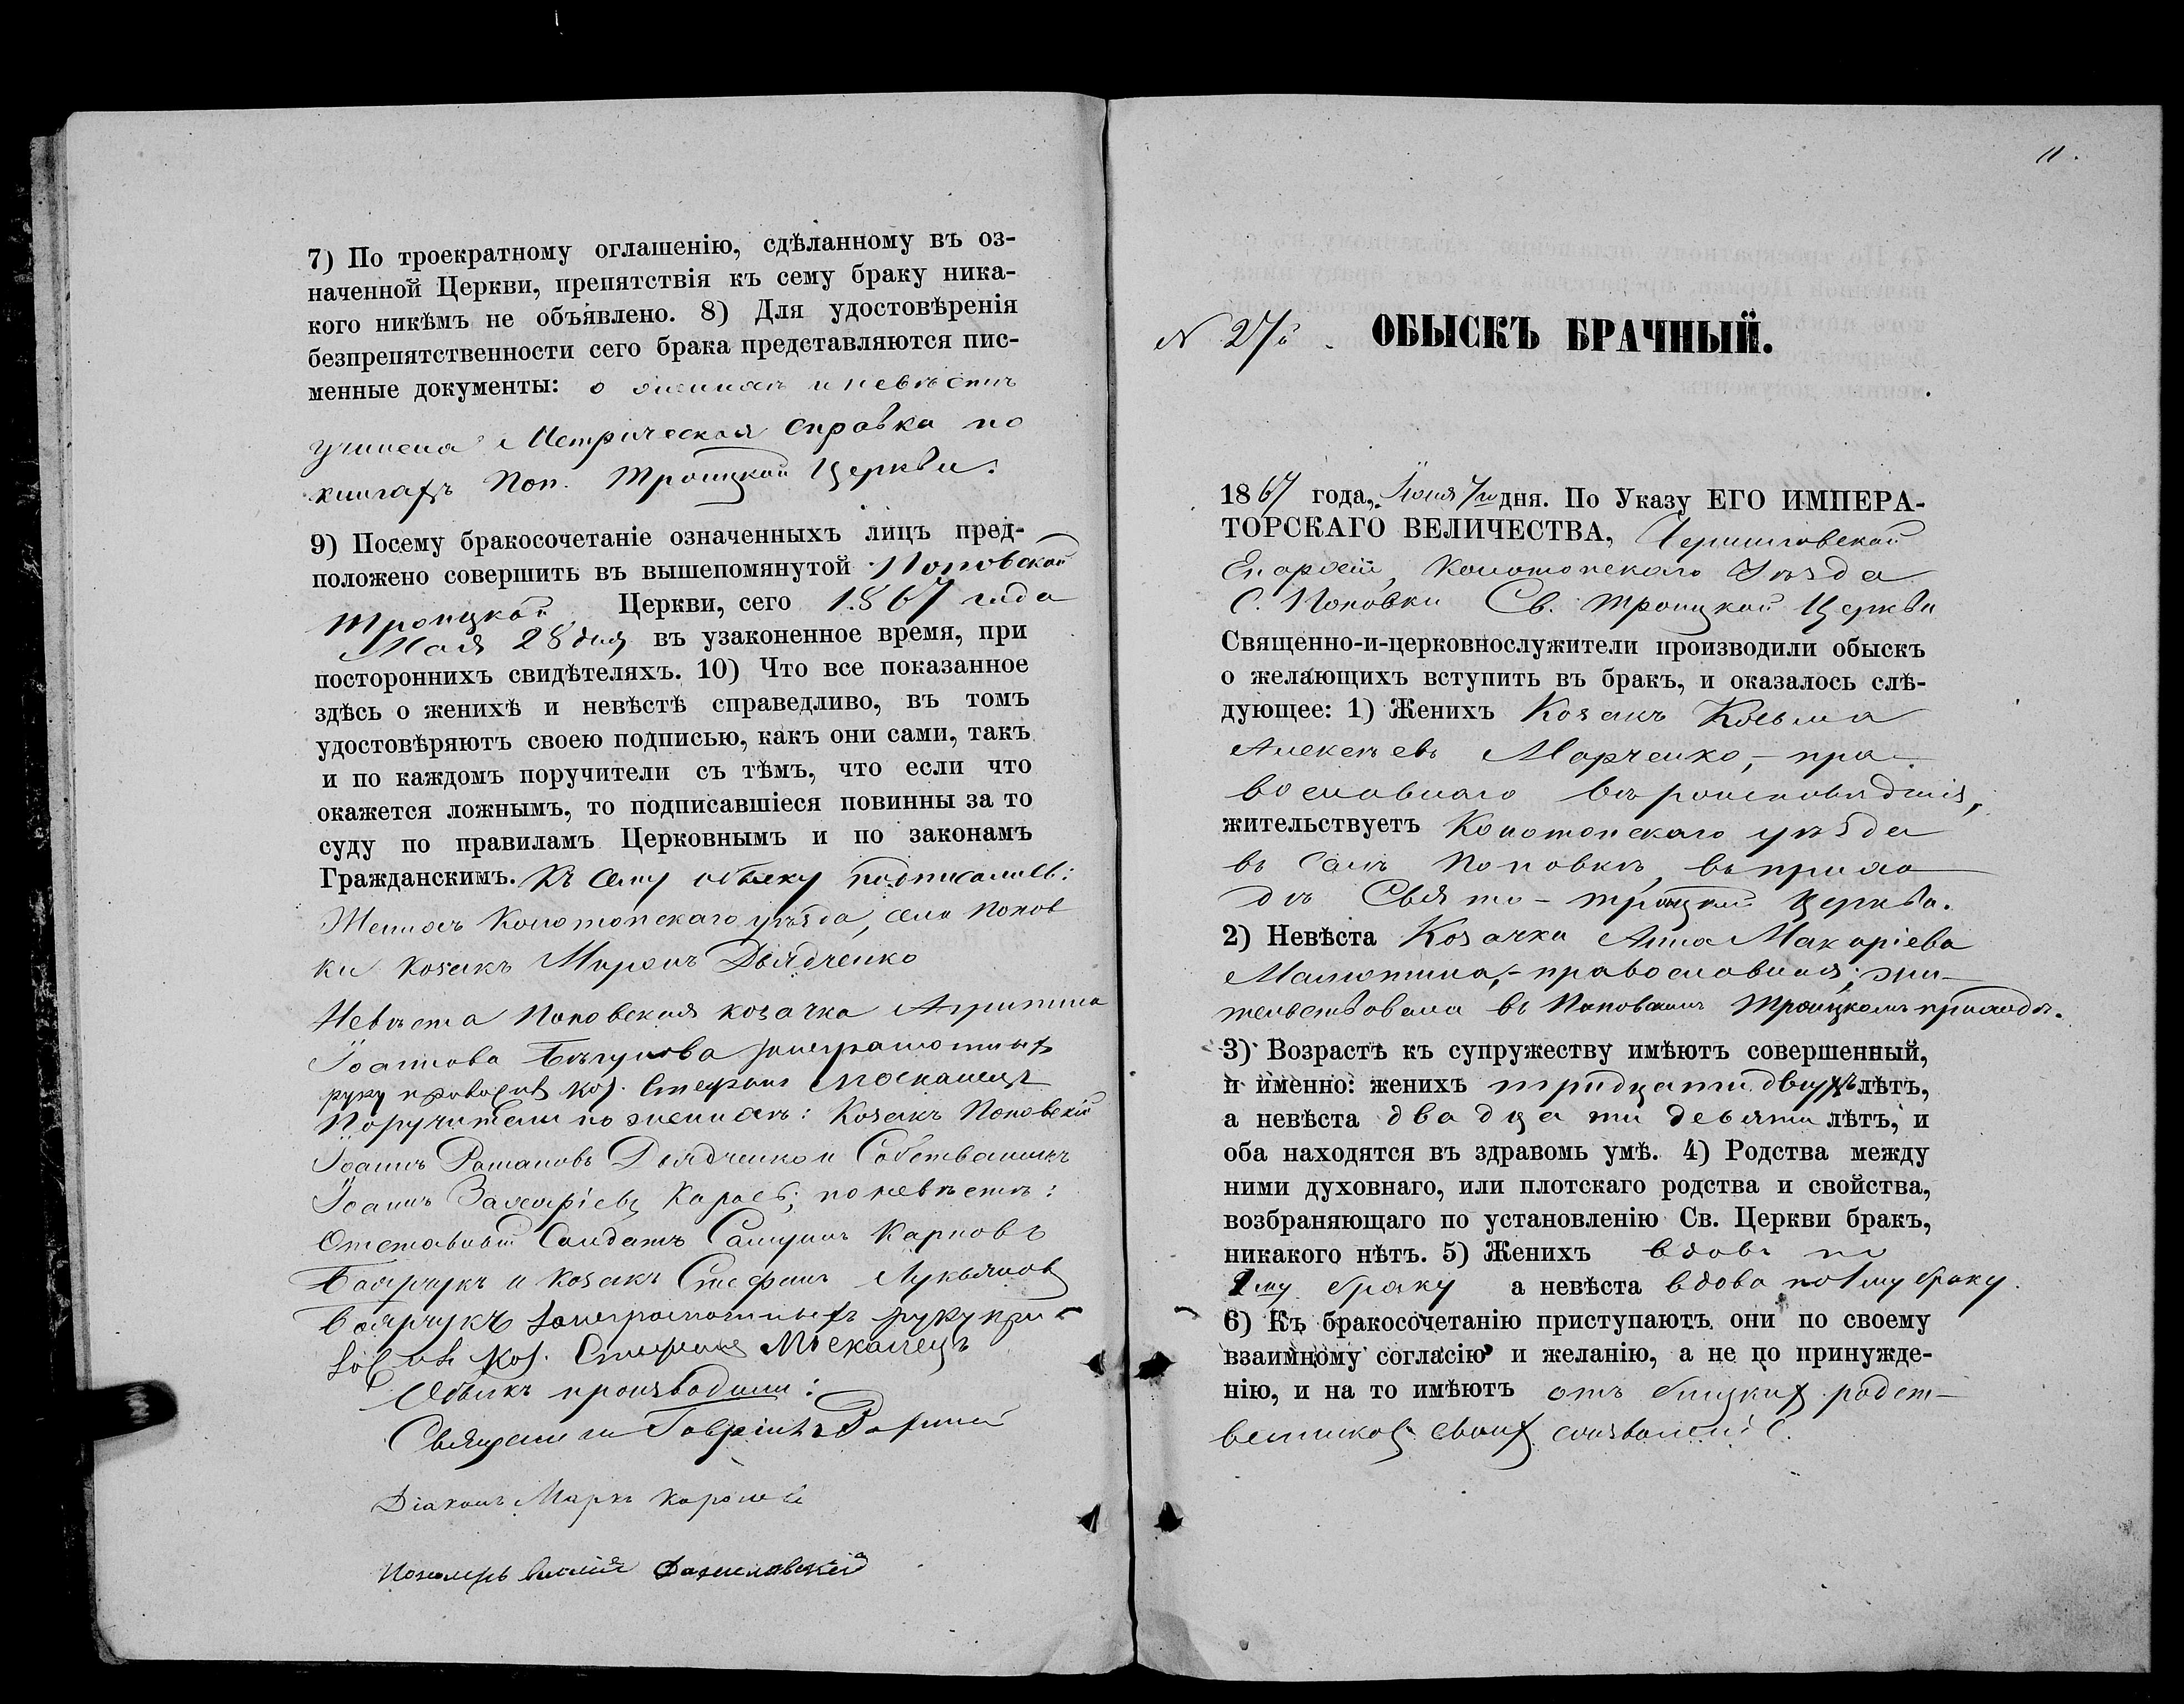 7) По троекратному оглашенію, сдѣланному въ оз-
наченной Церкви, препятствія къ сему браку ника-
кого никѣмъ не объявлено. 8) Для удостовѣренія
безпрепятственности сего брака представляются пис-
менные документы: о женихѣ и невѣстѣ
учинена Метрическая справка по
книгахъ Поп. Троицкой Церкви.
9) Посему бракосочетаніе означенныхъ лицъ пред-
положено совершить въ вышепомянутой Поповской
Троицкой Церкви, сего 1867 года
Мая 28 дня въ узаконенное время, при
постороннихъ свидѣтеляхъ. 10) Что все показанное
здѣсь о женихѣ и невѣстѣ справедливо, въ томъ
удостовѣряютъ своею подписью, какъ они сами, такъ
и по каждомъ поручители съ тѣмъ, что если что
окажется ложнымъ, то подписавшіеся повинны за то
суду по правиламъ Церковнымъ и по законамъ
Гражданскимъ. Къ сему обыску подписались:
Женихъ Конотопскаго уѣзда, села Попов
ки козакъ Миронъ Дьядченко
Невѣста Поповская козачка
Іоаннова Бѣгунова
руку приложилъ коз. Стефанъ Москалецъ
Поручители по женихѣ: Козакъ Поповскій
Іоаннъ Романовъ Дьядченко и Собственникъ
Іоаннъ Захаріевъ Карась; по невѣстѣ:
Отставный Солдатъ Самуилъ Карповъ
Баярчукъ и козакъ Стефанъ Лукьяновъ
Баярчукъ за неграмотныхъ руку при
ложилъ Коз. Стефанъ Москалецъ
Обыскъ производили:
Священникъ Гавріилъ
Діаконъ Маркъ
Пономарь Василій Даниловскій
11.
N 27й. ОБЫСКЪ БРАЧНЫЙ.
1867 года, Іюня 7го дня. По Указу ЕГО ИМПЕРА-
ТОРСКАГО ВЕЛИЧЕСТВА, Черниговской
Епархіи, Конотопскаго Уѣзда
С. Поповки Св. Троицкой Церкви
Священно-и-церковнослужители производили обыскъ
о желающихъ вступить въ бракъ, и оказалось слѣ-
дующее: 1) Женихъ Козакъ Косьма
Алексѣевъ Марченко, – пра-
вославнаго вѣроисповѣданія,
жительствуетъ Конотопскаго уѣзда
въ селѣ Поповкѣ, въ прихо
дѣ Свято-Троицкой Церкви.
2) Невѣста Козачка Анна Макаріева
Малютина, – православная; жи-
тельствовала въ Поповскомъ Троицкомъ приходѣ.
3) Возрастъ къ супружеству имѣютъ совершенный,
и именно: женихъ тридцати двухъ лѣтъ,
а невѣста двадцати девяти лѣтъ, и
оба находятся въ здравомъ умѣ. 4) Родства между
ними духовнаго, или плотскаго родства и свойства,
возбраняющаго по установленію Св. Церкви бракъ,
никакого нѣтъ. 5) Женихъ вдовъ по
1му браку а невѣста вдова по 1му браку.
6) Къ бракосочетанію приступаютъ они по своему
взаимному согласію и желанію, а не по принужде-
нію, и на то имѣютъ отъ близкихъ родст-
венниковъ своихъ соизволеніе.